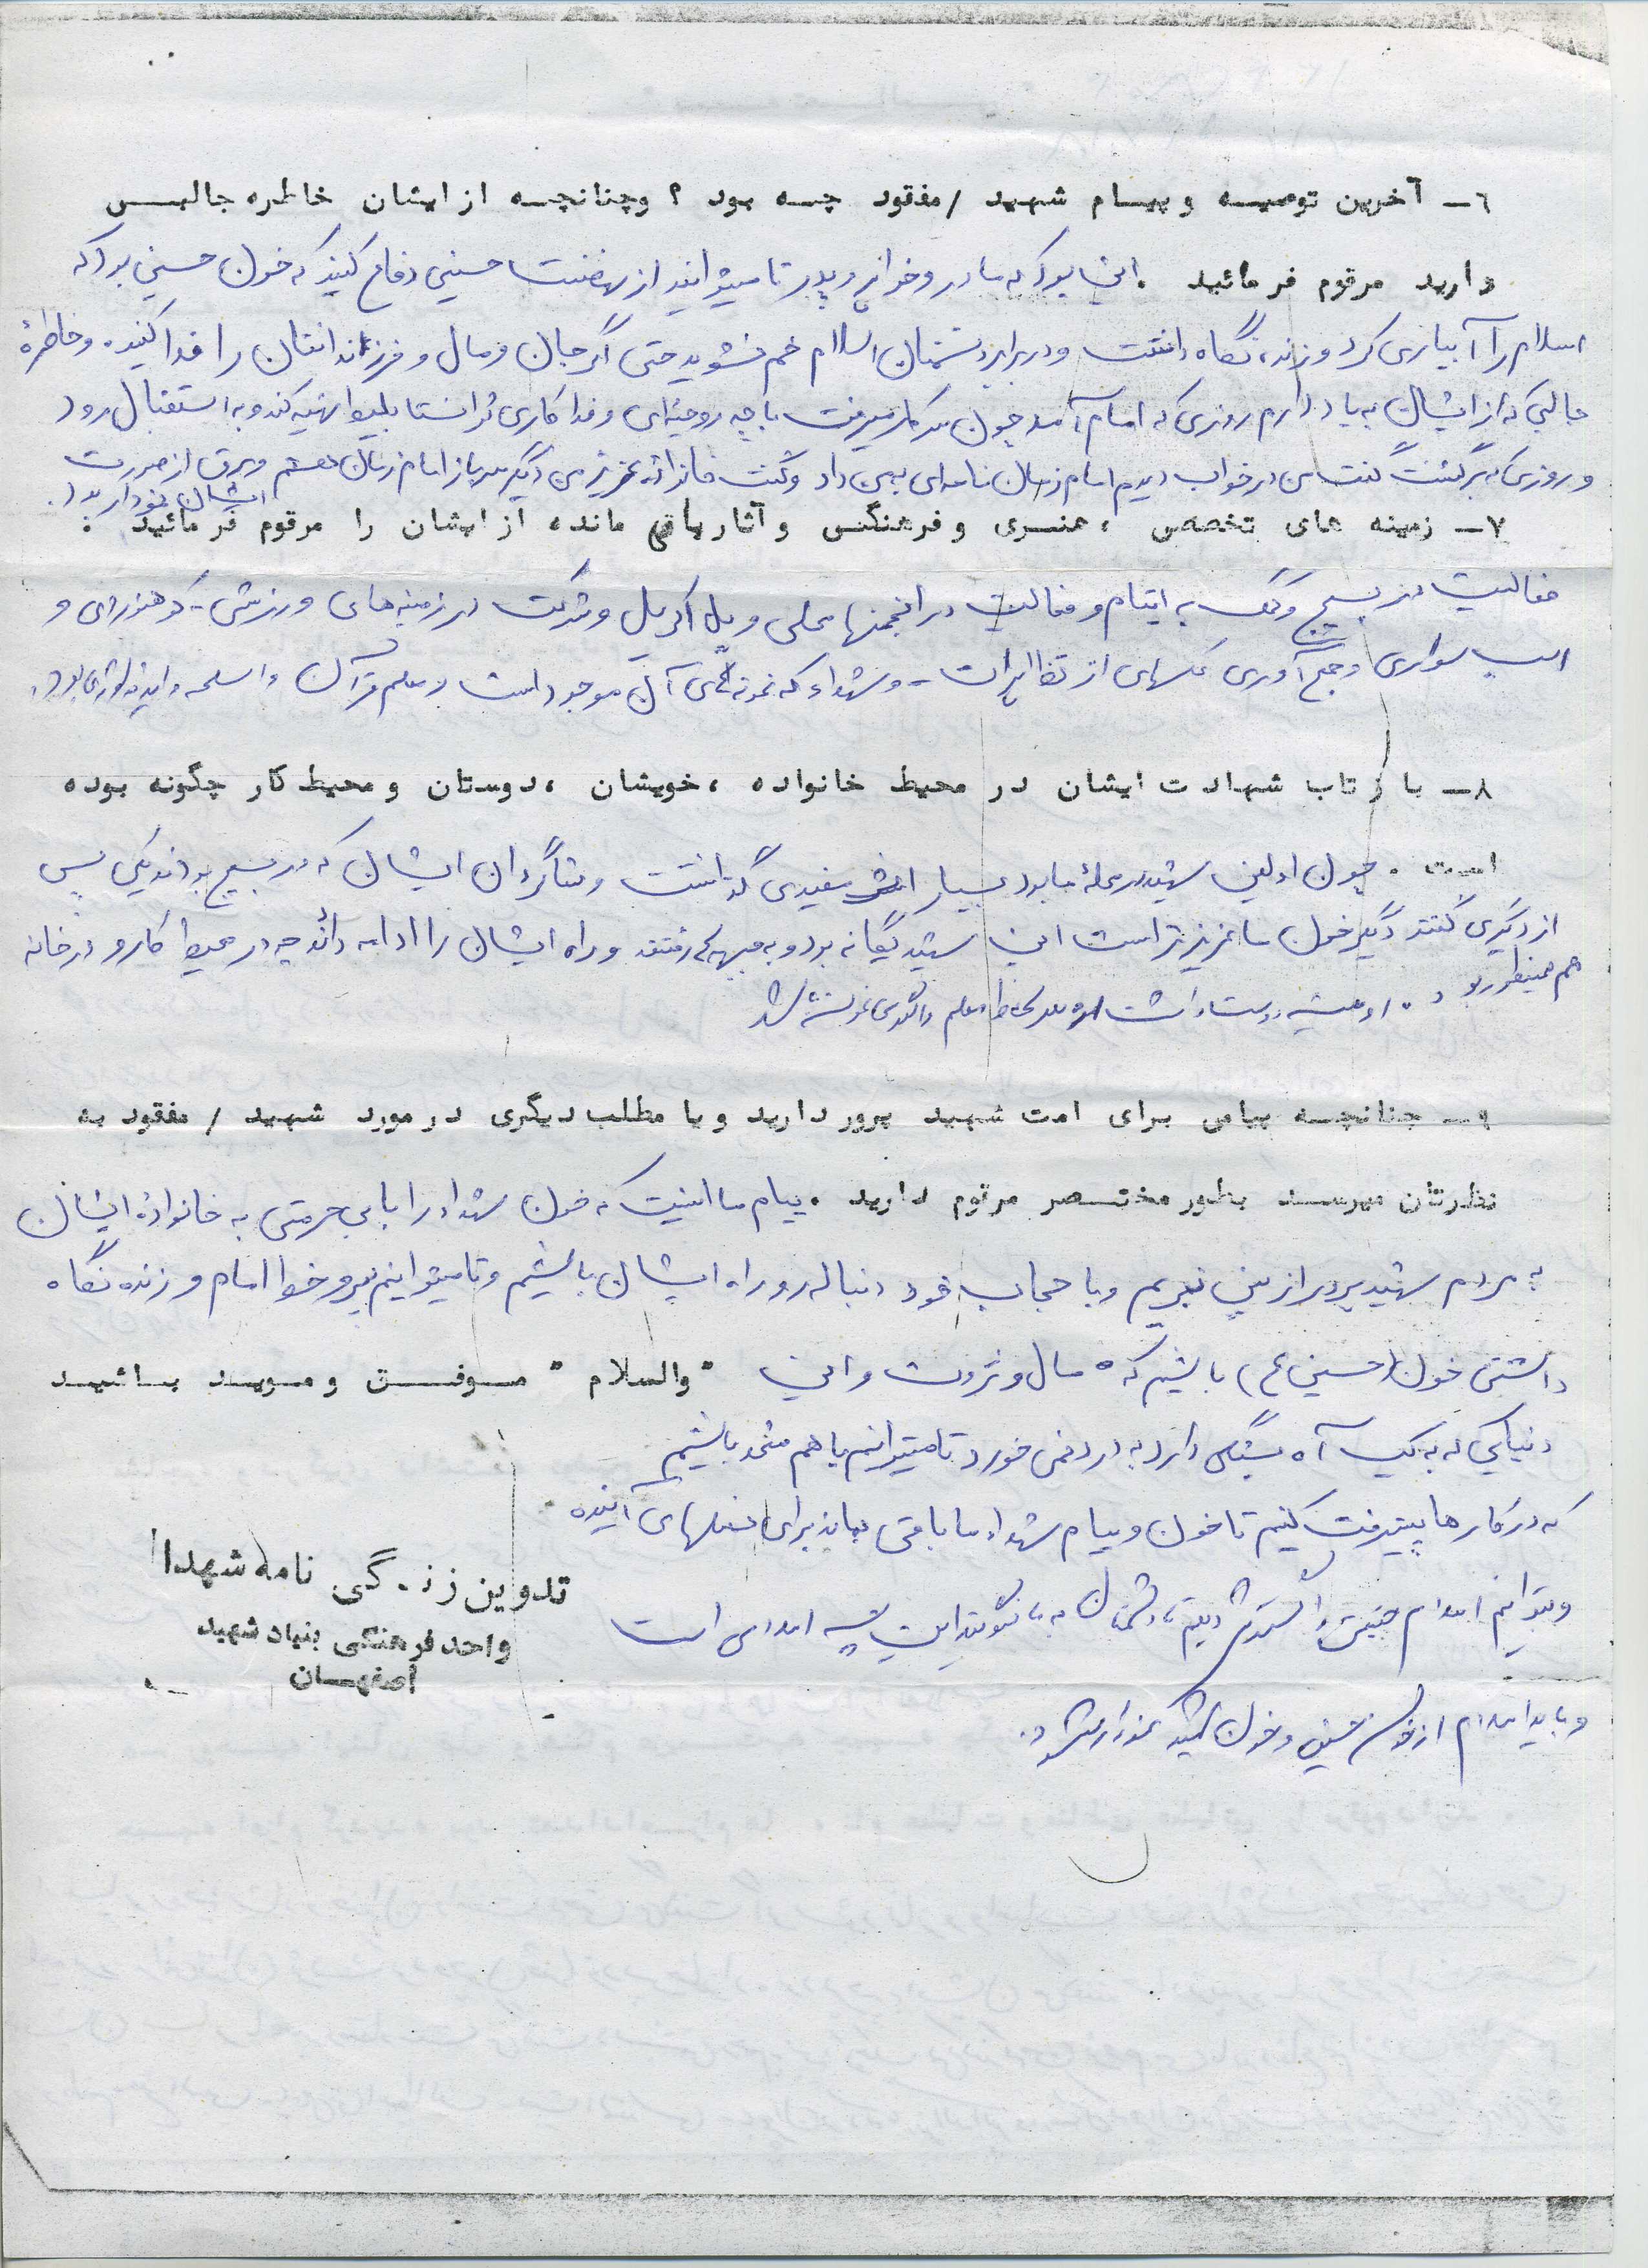 ٦ـ آخرین توصیه و پیام شهید / مفقود چه بود ؟ وچنانچه از ایشان خاطره جالبی
دارید مرقوم فرمائید . این بود که مادر و خواهر و پدر تا میتوانید از نهضت حسینی دفاع کنید که خون حسینی بود که
اسلام را آبیاری کرد و زنده نگاه داشت و در برابر دشمنان اسلام خم نشوید حتی اگر جان و مال و فرزندانتان را فدا کنید. و خاطرهٔ
جالبی که از ایشان به یاد دارم روزی که امام آمد چون سرکار میرفت با چه روحیه‌ای و فداکاری توانست بلیط تهیه کند و به استقبال رود
و روزی که برگشت گفت من در خواب دیدم امام زمان نامه‌ای بمن داد و گفت عزیز من دیگر سرباز امام زمان هستم و برق از صورت
ایشان نمودار بود.
٧ـ زمینه های تخصصی ، هنری و فرهنگی و آثار باقی مانده از ایشان را مرقوم فرمائید .
فعالیت در بسیج و کمک به ایتام و فعالیت در انجمنها محلی و شرکت در زمینه‌های ورزشی - کوهنوردی و
اسب سواری و جمع آوری عکسهای از تظاهرات - و شهداء که نمونه‌های آن موجود است و معلم قرآن و اسلحه و ایدئولوژی بود.
٨ـ بازتاب شهادت ایشان در محیط خانواده ، خویشان ، دوستان و محیط کار چگونه بوده
است . چون اولین شهید در محلهٔ ما بود بسیار اثر مفیدی گذاشت و شاگردان ایشان که در بسیج بودند یکی پس
از دیگری گفتند دیگر خون ما عزیزتر است این شهید یگانه بود و به جبهه رفتند و راه ایشان را ادامه دادند چه در محیط کار و در خانه
هم همینطور بود. او همیشه دوست داشت
٩ـ چنانچه پیامی برای امت شهید پرور دارید و یا مطلب دیگری در مورد شهید / مفقود به
نظرتان میرسد بطور مختصر مرقوم دارید . پیام ما اینست که خون شهداء را با بی حرمتی به خانوادهٔ ایشان
به مردم شهید پرور از بین نبریم و با حجاب خود دنباله رو راه ایشان باشیم و تا میتوانیم پیرو خط امام و زنده نگاه
داشتن خون (حسین ع) باشیم که مال و ثروت و این " والسلام " موفق و موید باشید
دنیایی که به یک آه بستگی دارد به درد نمی خورد تا میتوانیم با هم متحد باشیم
که در کارها پیشرفت کنیم تا خون و پیام شهداء ما باقی بماند برای نسلهای آینده
و بتوانیم اسلام را گسترش دهیم تا دشمنان
و باید اسلام از خون حسین و خون شهید
تدوین زندگی نامه شهدا
واحد فرهنگی بنیاد شهید
اصفهان